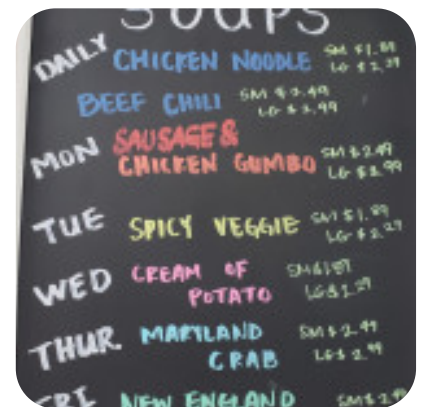 SOUPS
DAILY CHICKEN NOODLE SM $1.89
LG $2.29
BEEF CHILI SM $2.49
LG $2.99
MON SAUSAGE &
CHICKEN GUMBO SM $2.49
LG $2.99
TUE SPICY VEGGIE SM $1.89
LG $2.29
WED CREAM OF SM $1.89
POTATO LG $2.29
THUR MARYLAND SM $2.49
CRAB LG $2.99
FRI NEW ENGLAND SM $2.49